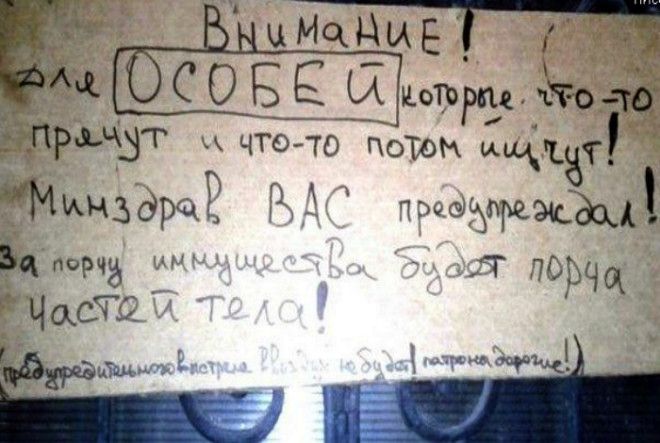 Внимание!
для ОСОБЕЙ которые что-то
прячут и что-то потом ищут!
Минздрав ВАС предупреждал!
За порчу иммущества будет порча
частей тела!
(предупредительного выстрела в воздух не будет! патрона дорогие!)